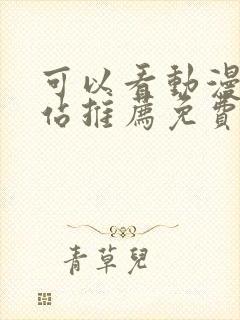 可以看動漫
佔推薦免費
青草兒